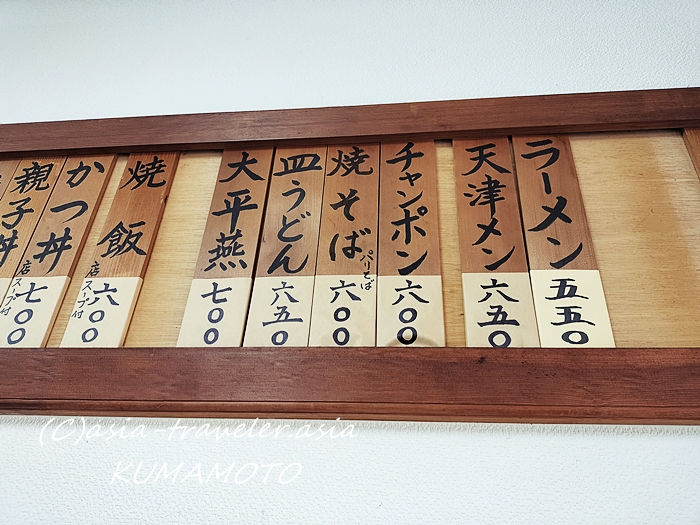 ラーメン
五五〇
天津メン
六五〇
チャンポン
六〇〇
焼そば
パリそば
六〇〇
皿うどん
六五〇
大平燕
七〇〇
焼飯
店スープ付
六〇〇
かつ丼
親子丼
店スープ付
七〇〇
(C)asia-traveler.asia
KUMAMOTO